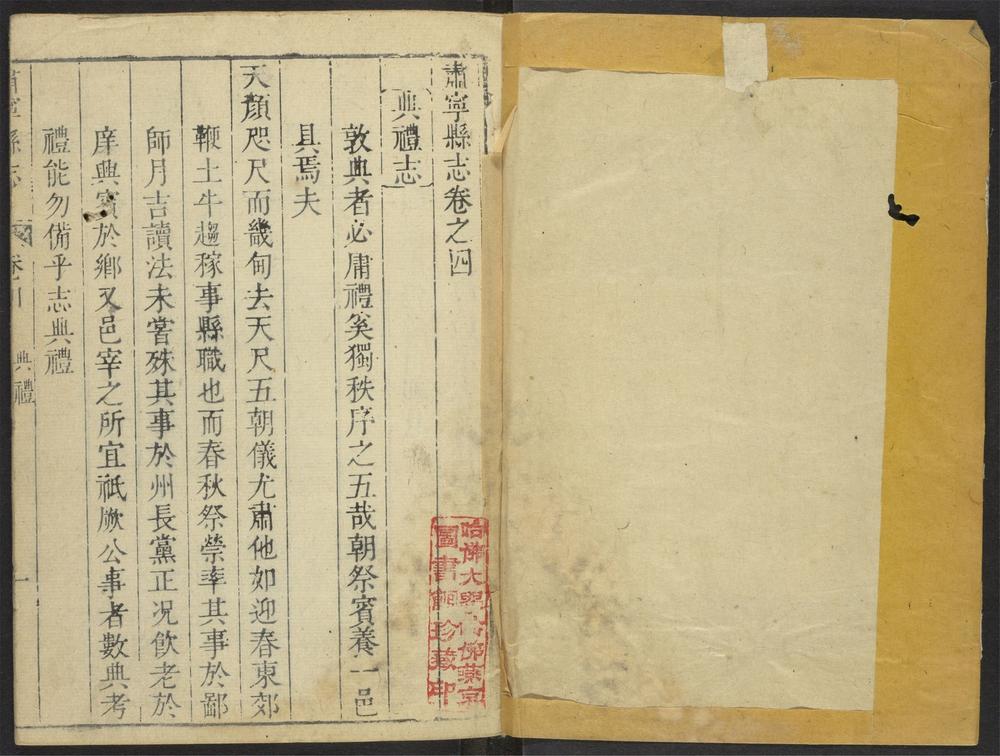 肅寧縣志卷之四
典禮志
敦典者必庸禮奚獨秩序之五哉朝祭賓養一邑
具焉夫
天顏咫尺而畿甸去天尺五朝儀尤肅他如迎春東郊
鞭土牛趨稼事縣職也而春秋祭禜率其事於鄙
師月吉讀法未嘗殊其事於州長黨正况飲老於
庠興賓於鄉又邑宰之所宜祇厥公事者數典考
禮能勿備乎志典禮
縣志 典禮 一
哈佛大學哈佛燕京
圖書館珍藏印